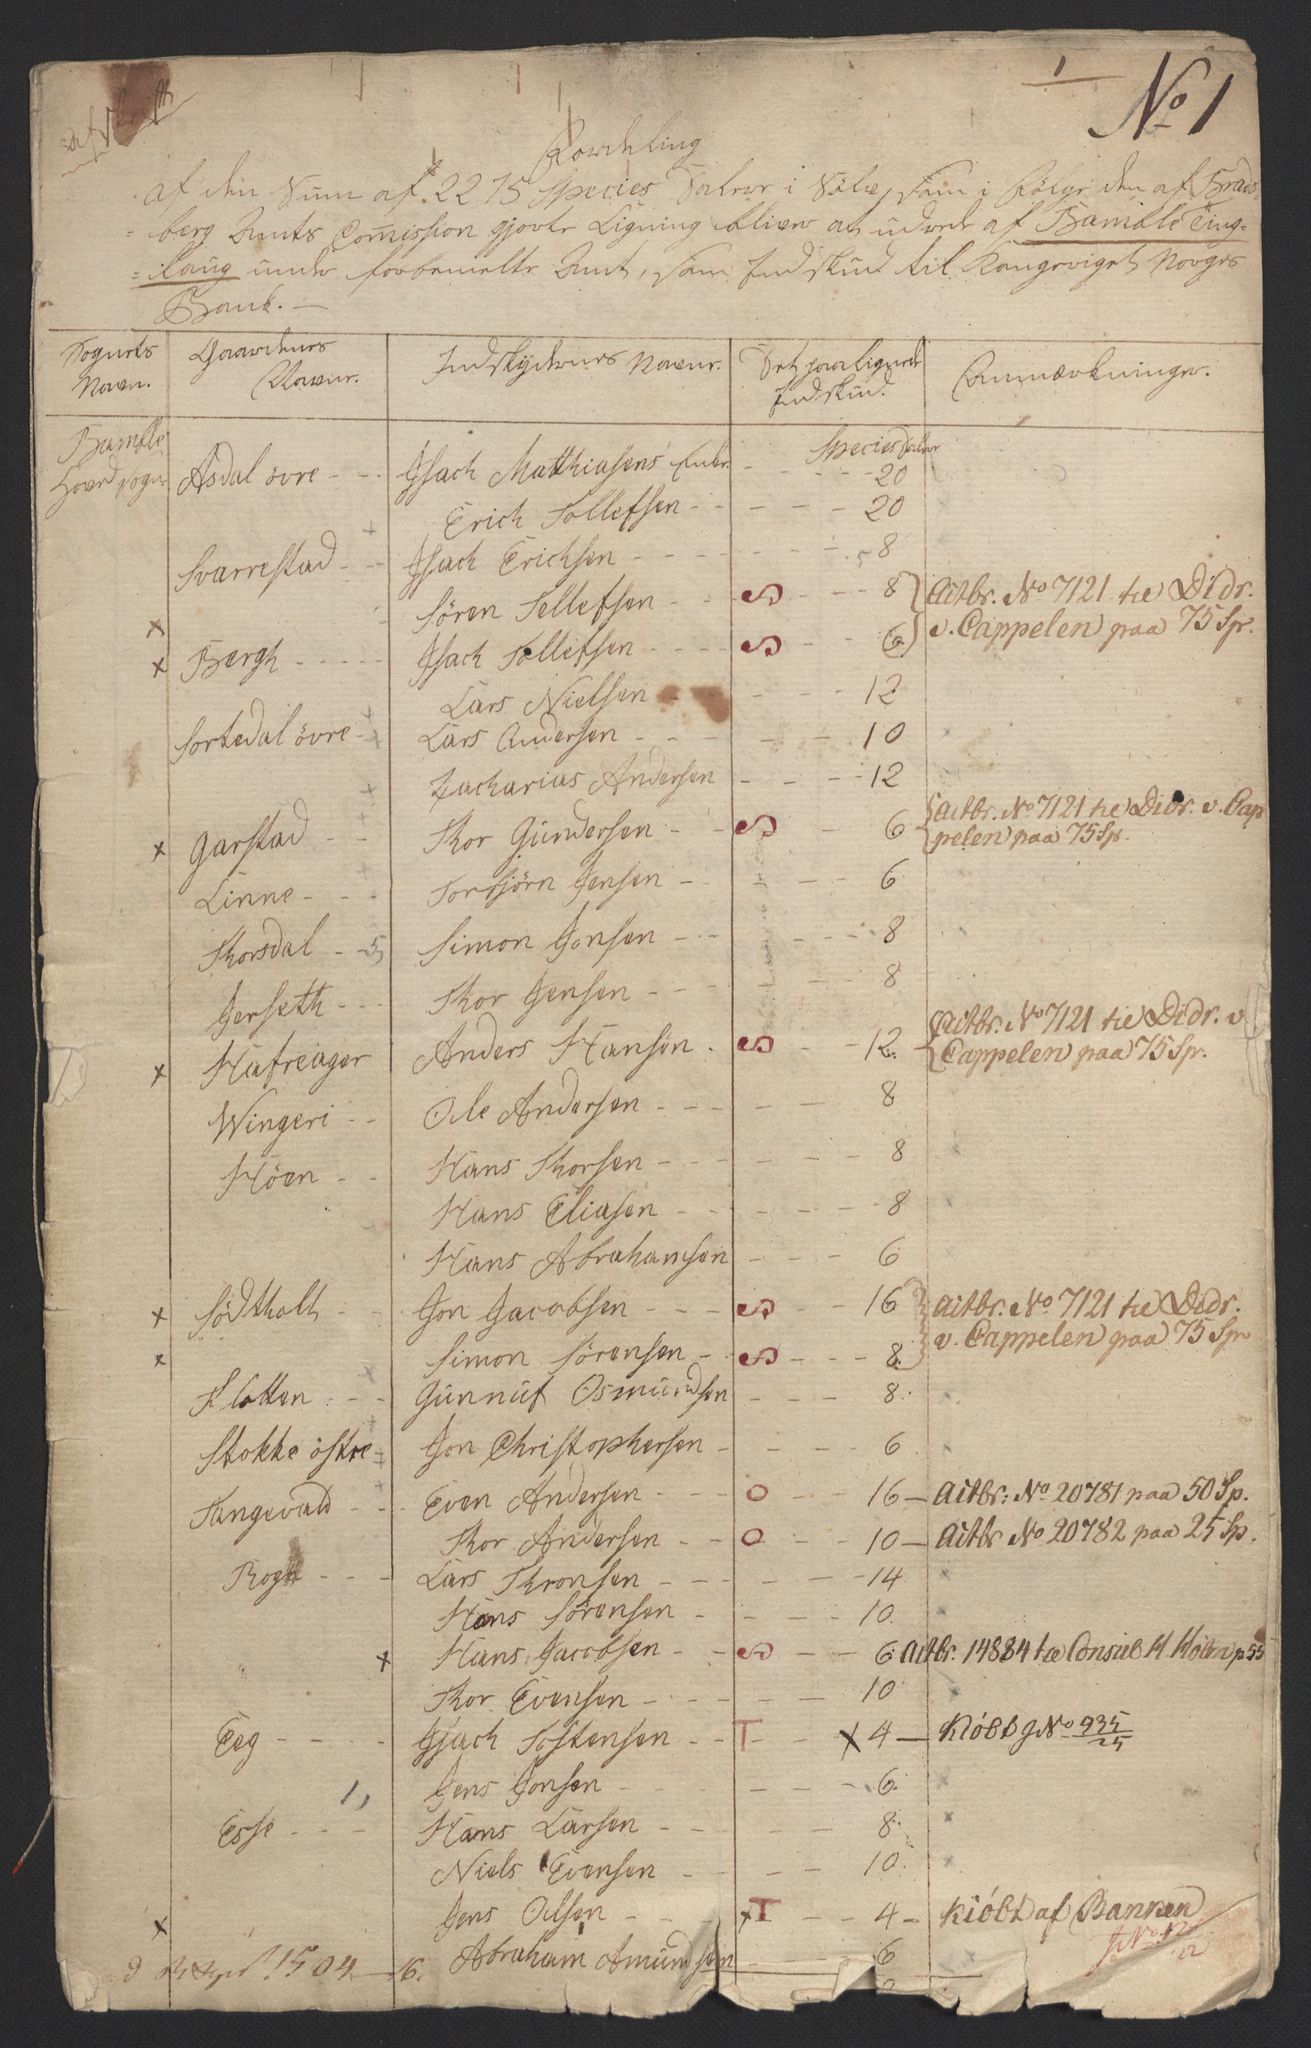 1
No 1
Fordeling
af den Sum af 2275 Species Daler i Sölv, som i fölge den af Brads-
berg Amts Comission gjorte Ligning bliver at udrede af Bamble Ting-
laug under forbemelte Amt, som Indskud til Kongeriget Norges
Bank. —
Sognets Navn. Gaardenes Navne. Indskydernes Navne. Det paalignede Indskud. Anmærkninger.
Species Daler
Bamble Hovedsogn Asdal övre - - Isach Mathiasens Enke - - 20
Erich Tollefsen - - - - 20
Svarrestad - - Isach Erichsen - - - - 8
x Sören Tellefsen - - S - - 8 Actbr. No 7121 til Didr.
x Bergh - - - Isach Tollefsen - - S - - 6 v. Cappelen paa 75 Sp.
Lars Nielsen - - - 12
Sortedal övre - Lars Andersen - - - - 10
Zacharias Andersen - - - 12
x Garstad - - Thor Gundersen - - S 6 Actbr. No 7121 til Didr. v. Cap
pelen paa 75 Sp.
Linne - - - Torbjörn Jensen - - - 6
Thorsdal - - 5, Simon Jonsen - - - - 8
Jerseth - - Thor Jensen - - - 8
x Hafreager Anders Hansen . S - - 12. Actbr. No 7121 til Didr. v
Cappelen paa 75 Sp.
Wingeri - - Ole Andersen - - - - 8
Höen - - Hans Thorsen - - - - 8
Hans Eliasen - - - - 8
Hans Abrahamsen - - - 6
x Södtholt - - Jon Jacobsen - - - S - - 16 Actbr. No 7121 til Didr.
x Simon Sörensen - S - - 8 v. Cappelen paa 75 Sp
Flotten - - Gunnuf Osmundsen - - - 8
Stokke östre - Jon Christophersen - - - 6
Tangevald - - Even Andersen - - - O - - 16 — Actbr: No 20781 paa 50 Sp.
Thor Andersen - - O - - 10 — Actbr No 20782 paa 25 Sp.
Rogn - - - Lars Thronsen - - - - 14
Hans Sörensen - - - - 10.
x Hans Jacobsen - - S - - 6. Actbr. 14884 til Consul H Möller p 55
Thor Evensen - - - - 10
Eeg - - - Isach Tostensen - - T - - x 4 — Kiöbt No 935/25
Jens Jonsen - - - - 6.
1,
Esse - - - Hans Larsen - - - - 8.
Niels Evensen - - - 10.
x Jens Olsen - - x T - - 4 - Kiöbt af Banken
6. Abraham Amundsen - - - 6